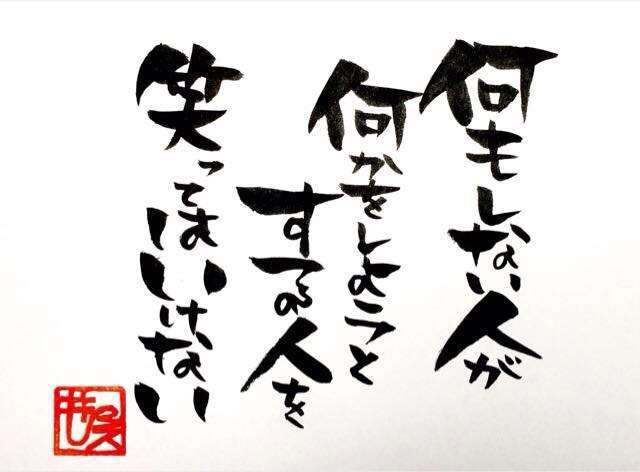 何もしない人が
何かをしようと
する人を
笑ってはいけない